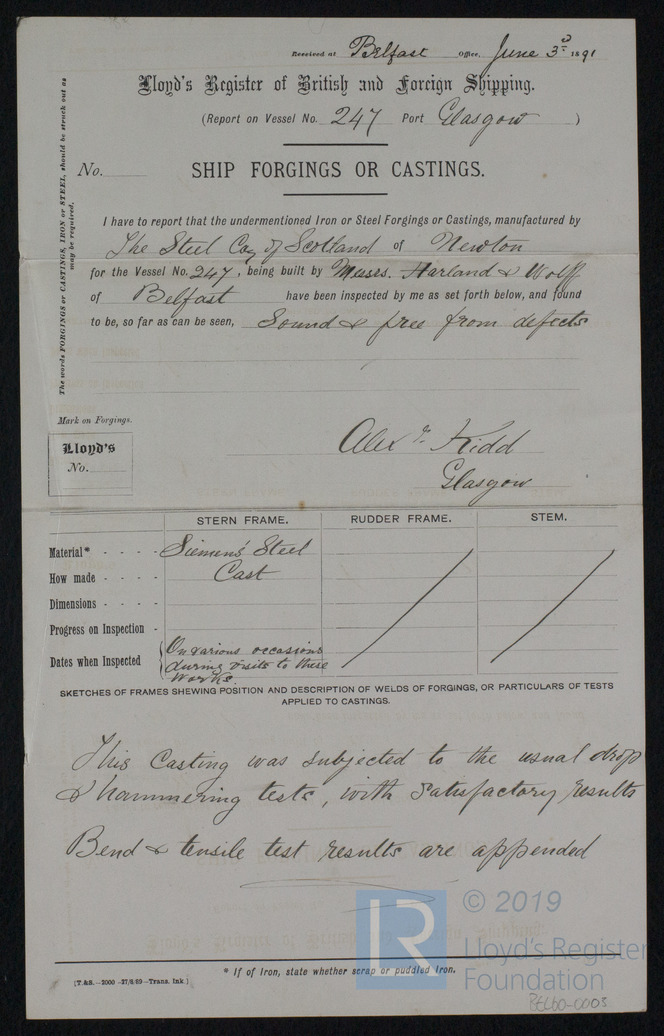 Received at Belfast Office, June 3rd 1891
Lloyd's Register of British and Foreign Shipping.
(Report on Vessel No. 247 Port Glasgow )
No.
SHIP FORGINGS OR CASTINGS.
The words FORGINGS or CASTINGS, IRON or STEEL, should be struck out as
may be required.
I have to report that the undermentioned Iron or Steel Forgings or Castings, manufactured by
The Steel Coy of Scotland of Newton
for the Vessel No. 247, being built by Messrs. Harland & Wolff
of Belfast have been inspected by me as set forth below, and found
to be, so far as can be seen, Sound & free from defects
Mark on Forgings.
Lloyd's
No.
Alexr Kidd
Glasgow
STERN FRAME. RUDDER FRAME. STEM.
Material* - - - - Siemens' Steel
How made - - - - Cast
Dimensions - - - -
Progress on Inspection -
Dates when Inspected { On various occasions
during visits to these
works.
SKETCHES OF FRAMES SHEWING POSITION AND DESCRIPTION OF WELDS OF FORGINGS, OR PARTICULARS OF TESTS
APPLIED TO CASTINGS.
This Casting was subjected to the usual drop
& hammering tests, with satisfactory results
Bend & tensile test results are appended
© 2019
LR Lloyd's Register
Foundation
* If of Iron, state whether scrap or puddled Iron.
[T.&S.—2000 —27/8/89—Trans. Ink.]
BEL60-0003